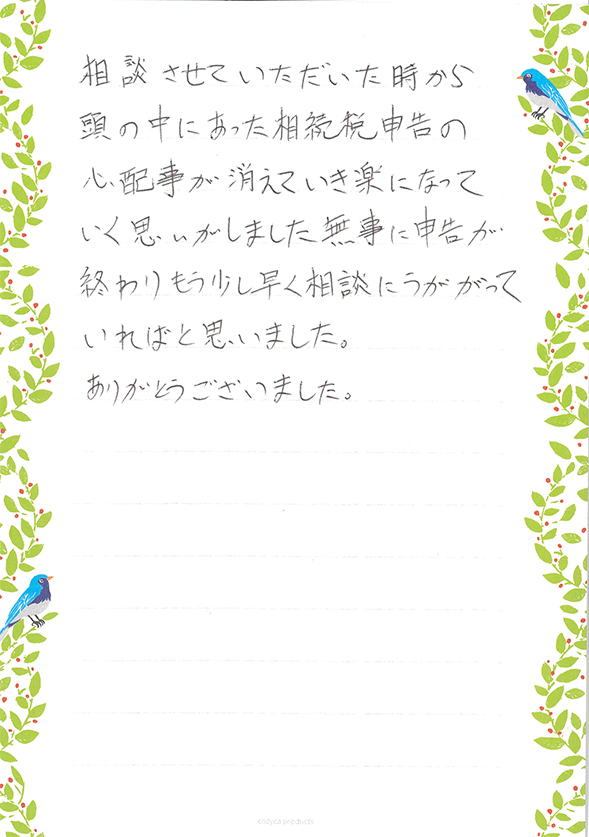 相談させていただいた時から
頭の中にあった相続税申告の
心配事が消えていき楽になって
いく思いがしました無事に申告が
終わりもう少し早く相談にうががって
いればと思いました。
ありがとうございました。